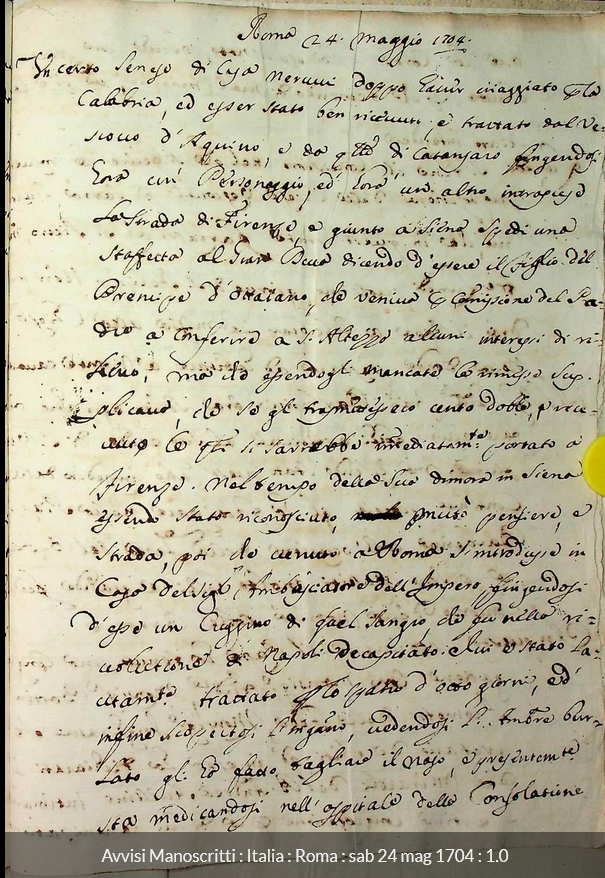 Roma 24. Maggio 1704.
Un certo Senese di Casa Nerucci doppo haver viaggiato p la
Calabria, ed esser stato ben ricevuti, e trattato dal Ve-
scovo d'Aquino, e da qllo di Catanzaro fingendosi
hora un Personaggio, ed hora un altro intraprese
la Strada di Firenze, e giunto a Siena spedi una
staffetta al Gran Duca dicendo d'essere il figlio del
Prencipe d'Ottaiano, che veniva p comissione del Pa-
dre a conferire a S. Altezza alcuni interessi di ri-
lievo, ma che essendogli mancate le rimesse sup-
plicava, che se gli trasmettessero cento doble, e rice-
vute le qli si sarrebbe imediatamte portato a
Firenze. Nel tempo della Sua dimora in Siena
essendo stato riconosciuto, mutò pensiere, e
strada, poi che venuto a Roma s'introdusse in
Casa del Sigr Ambasciatore dell'Impero fingendosi
d'esse un Cuggino di quel Sangro che fu nella ri-
volutione di Napoli decapitato. Ivi è stato la-
utamte trattato p lo spatio d'otto giorni, ed
infine scopertosi l'inganno, vedendosi l'Ambre bur-
lato gli hà fatto tagliare il naso, e presentemte
sta medicandosi nell'ospitale della Consolatione
Avvisi Manoscritti : Italia : Roma : sab 24 mag 1704 : 1.0